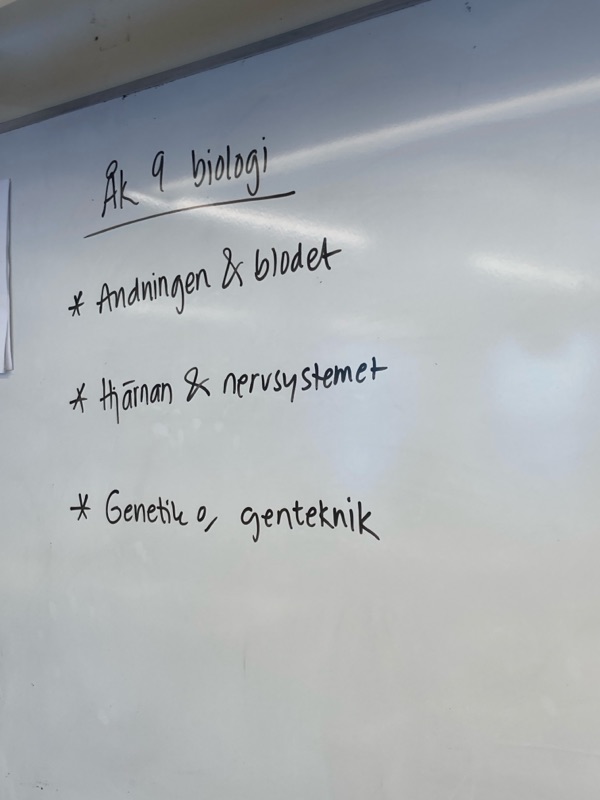 Åk 9 biologi
* Andningen & blodet
* Hjärnan & nervsystemet
* Genetik o, genteknik